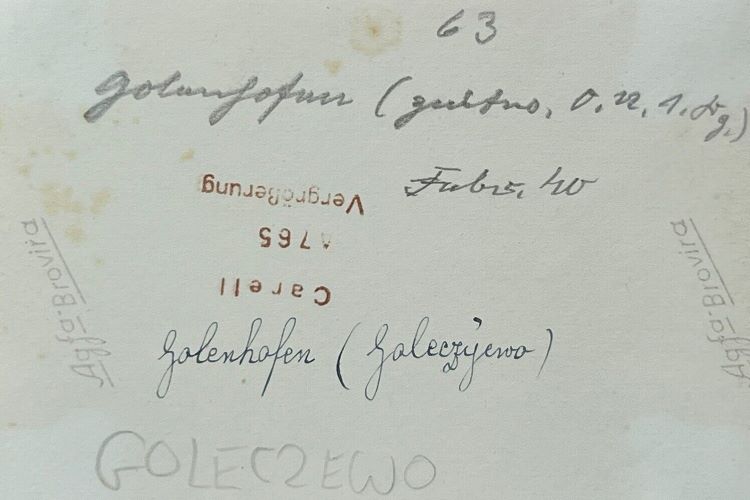 63
Golenhofen (
Febr. 40
Vergrößerung
A765
Carell
Agfa-Brovira
Agfa-Brovira
Golenhofen (Goleczÿewo)
GOLECZEWO